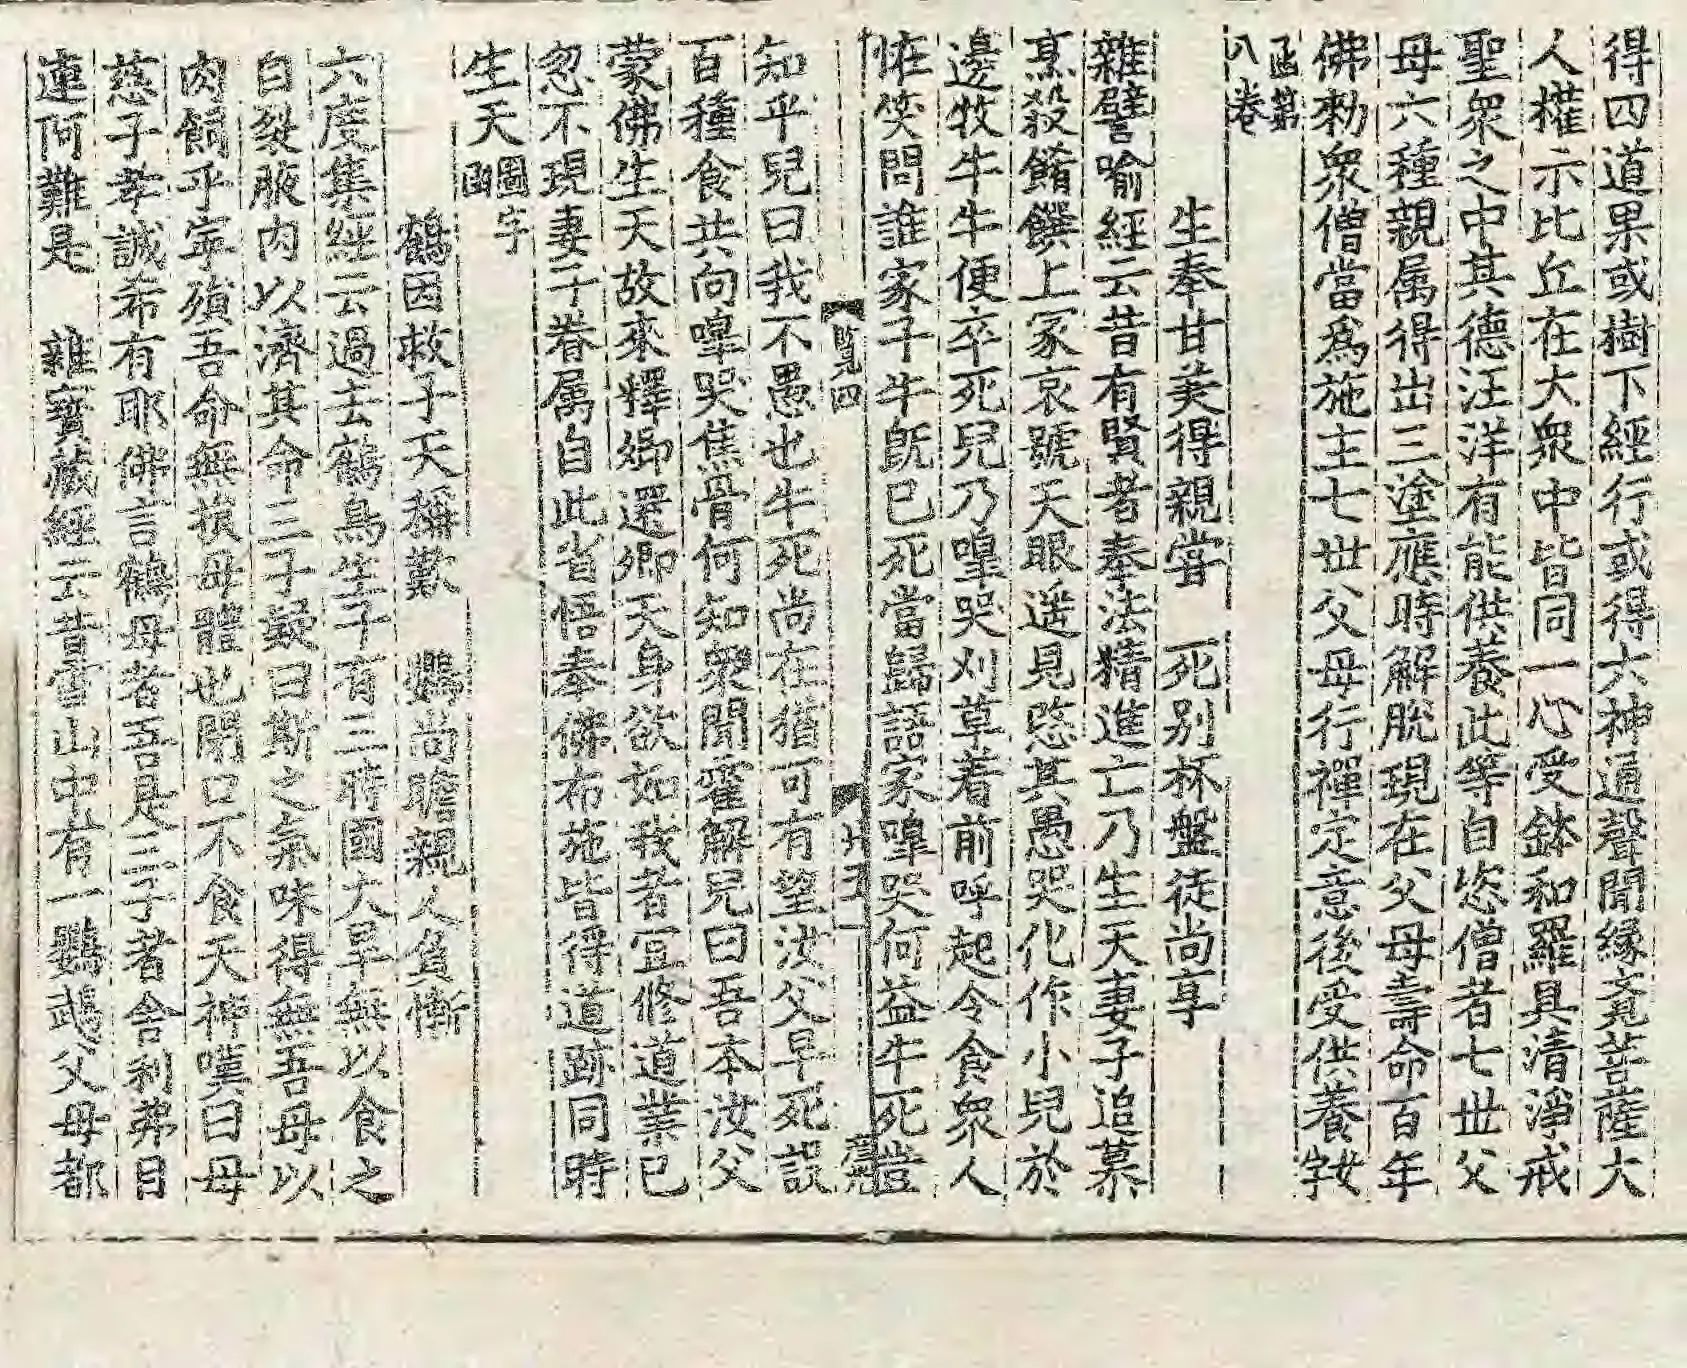 得四道果或樹下經行或得六神通聲聞緣覔菩薩大
人權示比丘在大衆中皆同一心受鉢和羅具清淨戒
聖衆之中其德汪洋有能供養此等自恣僧者七世父
母六種親属得出三塗應時解脫現在父母壽命百年
佛勑衆僧當爲施主七世父母行禪定意後受供養字女
函第
八卷
生奉甘美得親嘗　死别杯盤徒尚享
雜譬喻經云昔有賢者奉法精進亡乃生天妻子追慕
烹殺餚饌上冢哀號天眼遥見愍其愚哭化作小兒於
邊牧牛牛便卒死兒乃嘷哭刈草着前呼起令食衆人
恠笑問誰家子牛旣已死當歸語家嘷哭何益牛死豈
覧四　廿五
知乎兒曰我不愚也牛死尚在猶可有望汝父早死設
百種食共向嘷哭焦骨何知衆聞霍解兄曰吾本汝父
蒙佛生天故來釋鄉還卿天身欲如我者宜修道業已
忽不現妻子眷属自此省悟奉佛布施皆得道跡同時
生天圖字函
鶴因救子天稱歎　鸚尚瞻親人負慚
六度集經云過去鶴鳥生子有三時國大旱無以食之
自裂腋肉以濟其命三子疑曰斯之氣味得無吾母以
肉飼乎寧殞吾命無損母體也閉口不食天神嘆曰母
慈子孝誠希有耶佛言鶴母者吾是三子者舍利弗目
連阿難是　雜寳藏經云昔雪山中有一鸚鵡父母都